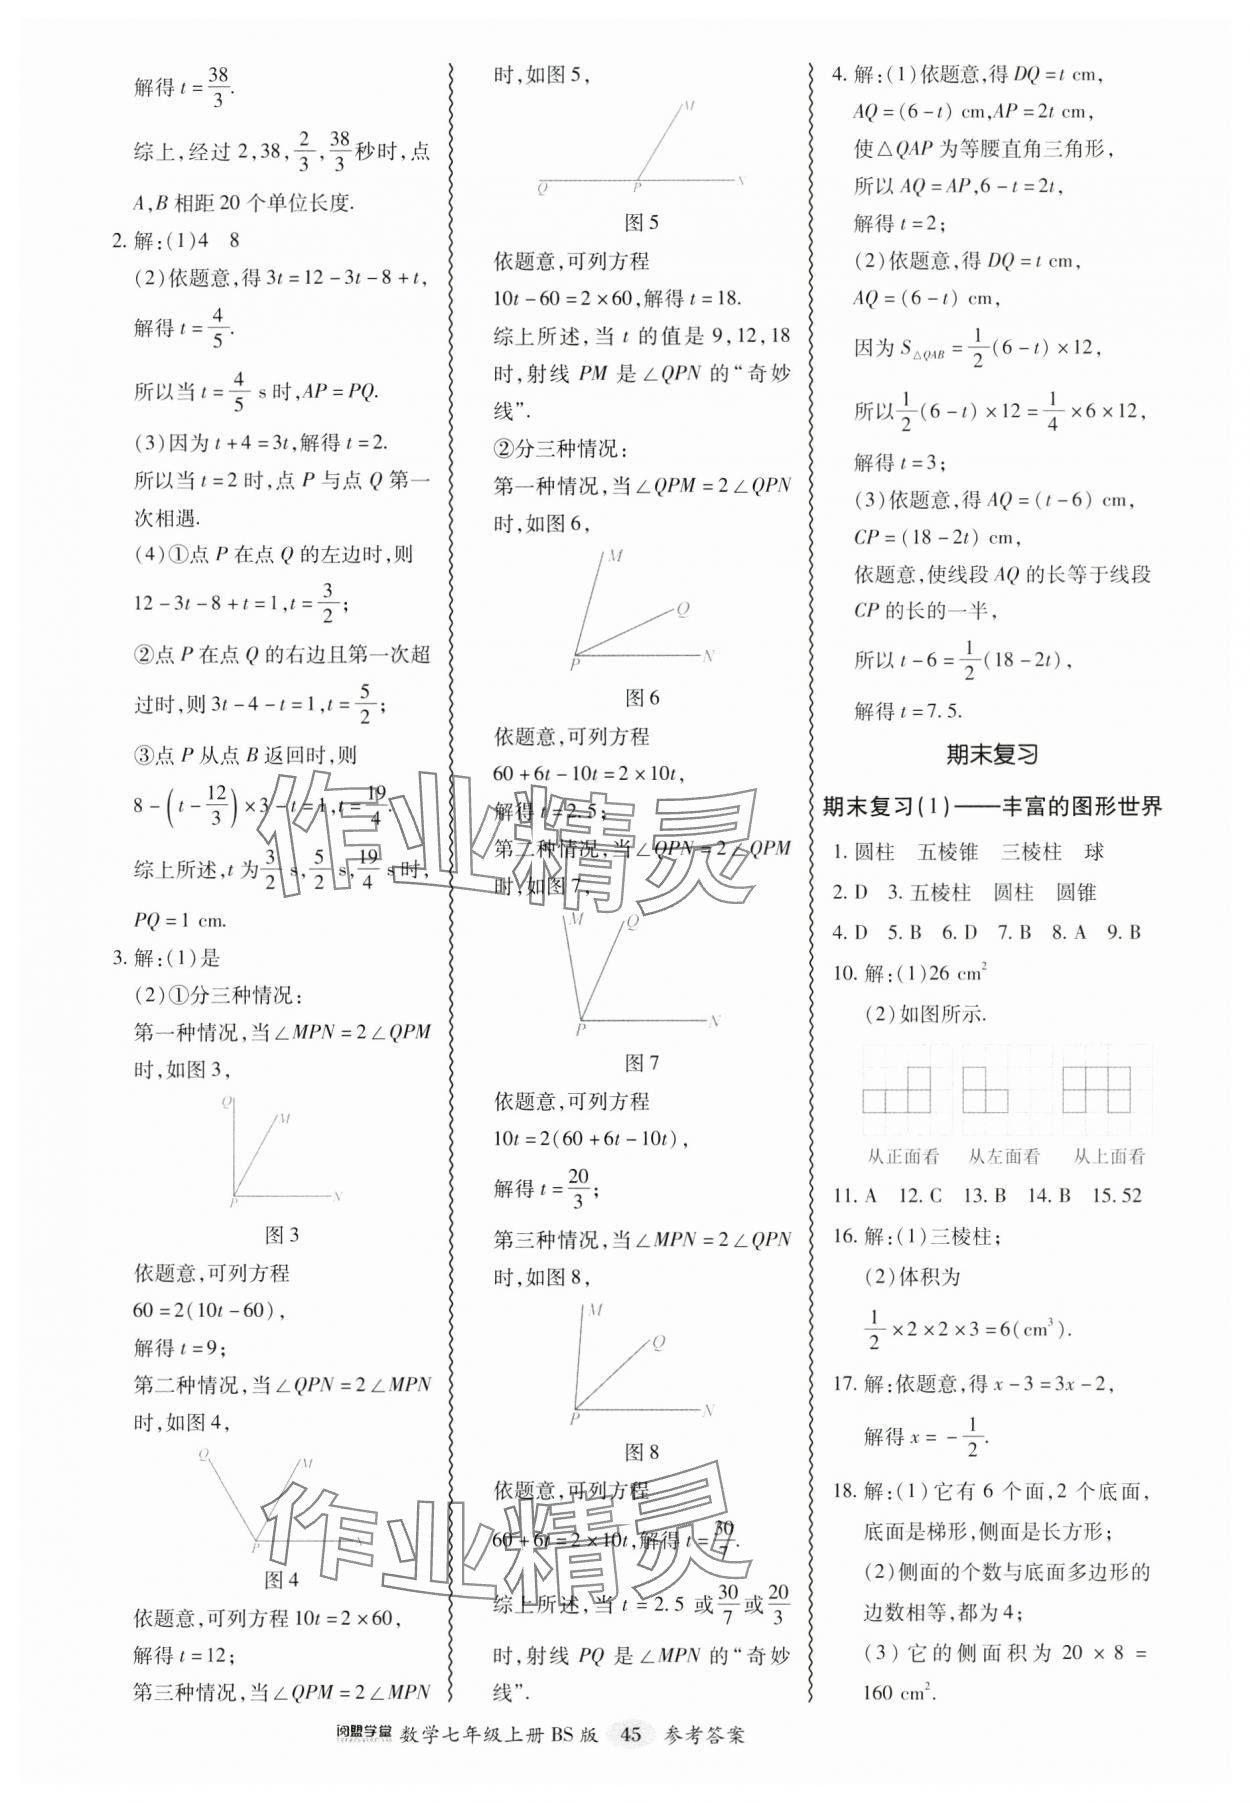 解得 t=38/3.
综上,经过 2,38,2/3,38/3秒时,点
A,B 相距 20 个单位长度.
2. 解:(1)4 8
(2)依题意,得 3t=12-3t-8+t,
解得 t=4/5.
所以当 t=4/5 s时,AP=PQ.
(3)因为 t+4=3t,解得 t=2.
所以当 t=2 时,点 P 与点 Q 第一
次相遇.
(4)①点 P 在点 Q 的左边时,则
12-3t-8+t=1,t=3/2;
②点 P 在点 Q 的右边且第一次超
过时,则 3t-4-t=1,t=5/2;
③点 P 从点 B 返回时,则
8-(t-12/3)×3-t=1,t=19/4.
综上所述,t 为3/2 s,5/2 s,19/4 s时,
PQ=1 cm.
3. 解:(1)是
(2)①分三种情况:
第一种情况,当∠MPN=2∠QPM
时,如图 3,
Q
M
P
N
图 3
依题意,可列方程
60=2(10t-60),
解得 t=9;
第二种情况,当∠QPN=2∠MPN
时,如图 4,
Q
M
P
N
图 4
依题意,可列方程 10t=2×60,
解得 t=12;
第三种情况,当∠QPM=2∠MPN
时,如图 5,
M
Q
P
N
图 5
依题意,可列方程
10t-60=2×60,解得 t=18.
综上所述,当 t 的值是 9,12,18
时,射线 PM 是∠QPN 的“奇妙
线”.
②分三种情况:
第一种情况,当∠QPM=2∠QPN
时,如图 6,
M
Q
P
N
图 6
依题意,可列方程
60+6t-10t=2×10t,
解得 t=2.5;
第二种情况,当∠QPN=2∠QPM
时,如图 7,
M
Q
P
N
图 7
依题意,可列方程
10t=2(60+6t-10t),
解得 t=20/3;
第三种情况,当∠MPN=2∠QPN
时,如图 8,
M
Q
P
N
图 8
依题意,可列方程
60+6t=2×10t,解得 t=30/7.
综上所述,当 t=2.5 或30/7或20/3
时,射线 PQ 是∠MPN 的“奇妙
线”.
4. 解:(1)依题意,得 DQ=t cm,
AQ=(6-t) cm,AP=2t cm,
使△QAP 为等腰直角三角形,
所以 AQ=AP,6-t=2t,
解得 t=2;
(2)依题意,得 DQ=t cm,
AQ=(6-t) cm,
因为 S△QAB=1/2(6-t)×12,
所以1/2(6-t)×12=1/4×6×12,
解得 t=3;
(3)依题意,得 AQ=(t-6) cm,
CP=(18-2t) cm,
依题意,使线段 AQ 的长等于线段
CP 的长的一半,
所以 t-6=1/2(18-2t),
解得 t=7.5.
期末复习
期末复习(1)——丰富的图形世界
1. 圆柱 五棱锥 三棱柱 球
2. D 3. 五棱柱 圆柱 圆锥
4. D 5. B 6. D 7. B 8. A 9. B
10. 解:(1)26 cm²
(2)如图所示.
从正面看 从左面看 从上面看
11. A 12. C 13. B 14. B 15. 52
16. 解:(1)三棱柱;
(2)体积为
1/2×2×2×3=6(cm³).
17. 解:依题意,得 x-3=3x-2,
解得 x=-1/2.
18. 解:(1)它有 6 个面,2 个底面,
底面是梯形,侧面是长方形;
(2)侧面的个数与底面多边形的
边数相等,都为 4;
(3)它的侧面积为 20×8=
160 cm².
作业精灵
作业精灵
阅盟学堂 数学七年级上册 BS 版 45 参考答案